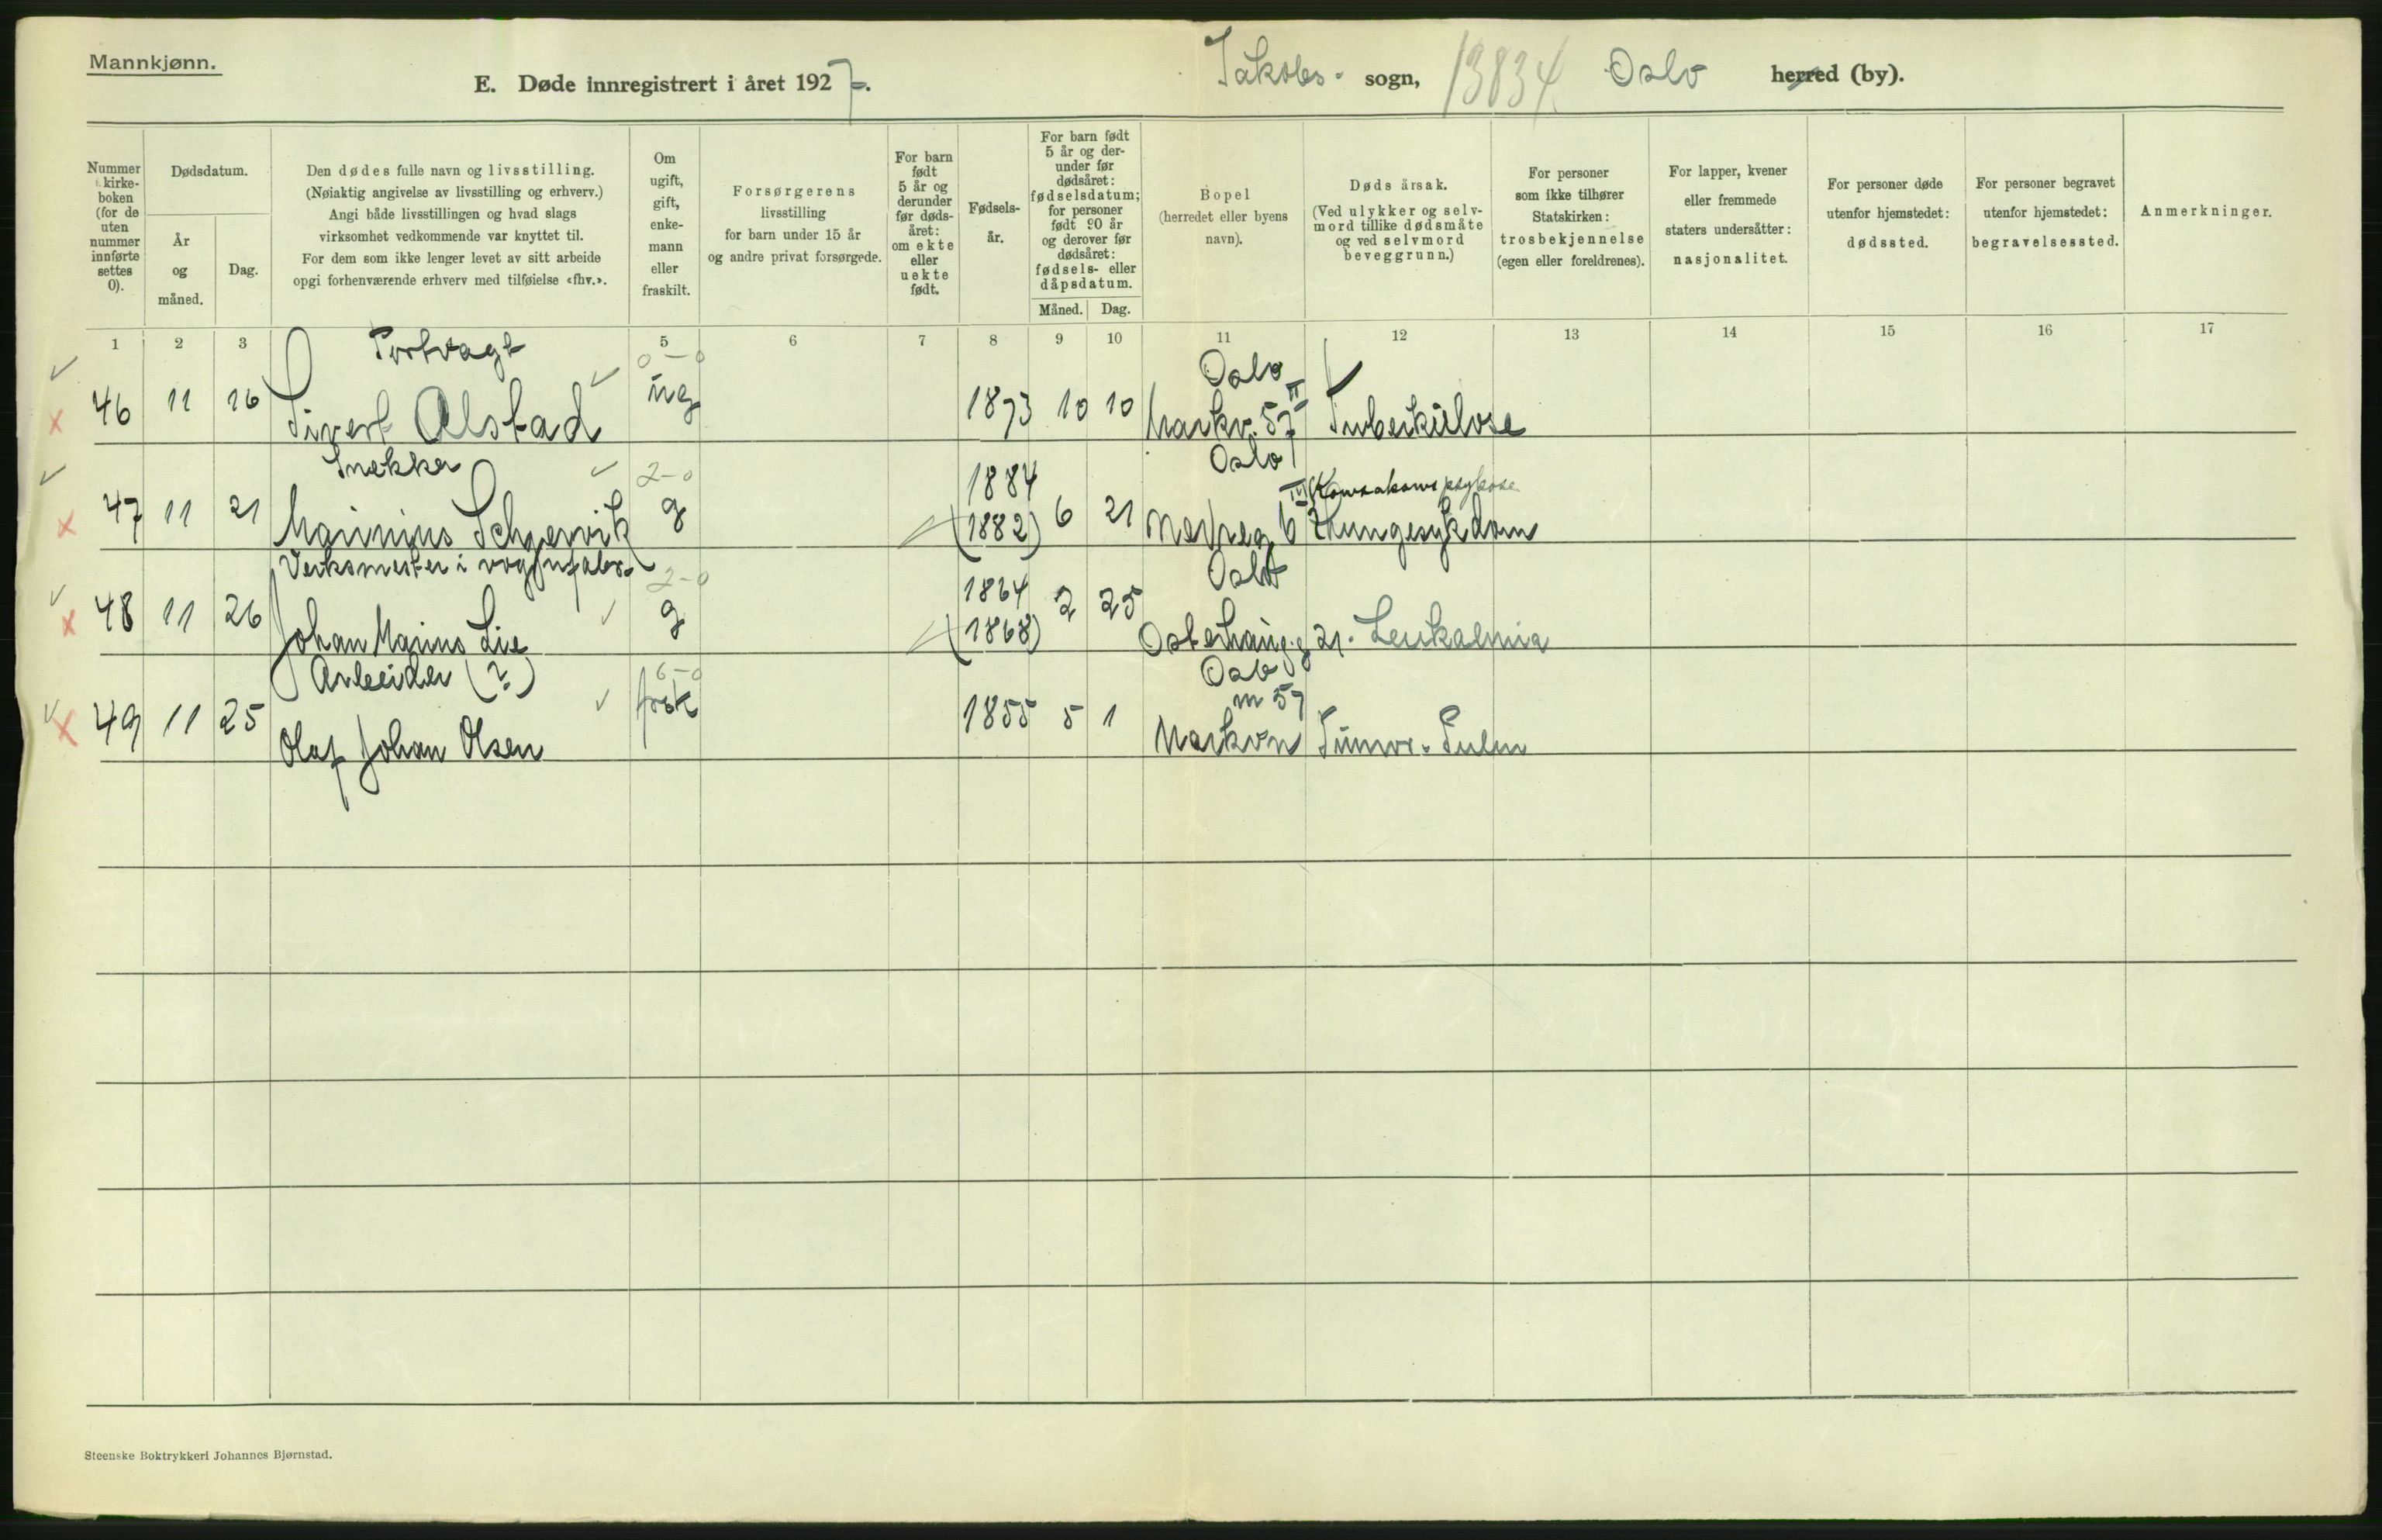 Mannkjønn.
E. Døde innregistrert i året 1927. Jakobs- sogn, 13834 Oslo herred (by).
Nummer i kirkeboken (for de uten nummer innførte settes 0).
Dødsdatum.
År og måned.
Dag.
Den dødes fulle navn og livsstilling.
(Nøiaktig angivelse av livsstilling og erhverv.)
Angi både livsstillingen og hvad slags
virksomhet vedkommende var knyttet til.
For dem som ikke lenger levet av sitt arbeide
opgi forhenværende erhverv med tilføielse «fhv.».
Om ugift, gift, enkemann eller fraskilt.
Forsørgerens
livsstilling
for barn under 15 år
og andre privat forsørgede.
For barn født 5 år og derunder før dødsåret: om ekte eller uekte født.
Fødselsår.
For barn født 5 år og derunder før dødsåret: fødselsdatum; for personer født 90 år og derover før dødsåret: fødsels- eller dåpsdatum.
Måned. Dag.
Bopel
(herredet eller byens
navn).
Dødsårsak.
(Ved ulykker og selvmord tillike dødsmåte og ved selvmord beveggrunn.)
For personer
som ikke tilhører
Statskirken:
trosbekjennelse
(egen eller foreldrenes).
For lapper, kvener
eller fremmede
staters undersåtter:
nasjonalitet.
For personer døde
utenfor hjemstedet:
dødssted.
For personer begravet
utenfor hjemstedet:
begravelsessted.
Anmerkninger.
1 2 3 5 6 7 8 9 10 11 12 13 14 15 16 17
Portvagt 0-0 Oslo
46 11 16 Sivert Alstad ug 1873 10 10 Markv. 57 II Tuberkulose
Snekker 2-0 1884 Oslo
47 11 21 Marinius g (1882) 6 21 6 III Korsakows psykose Lungesykdom
Verksmester i vognfabr. 2-0 1864 Oslo
48 11 26 Johan Marius Lie g (1868) 2 25 Osterhausg 21. Leukæmia
Arbeider (?) 6-0 Oslo
49 11 25 Olaf Johan Olsen frsk 1855 5 1 Markvn 57 Tumor
Steenske Boktrykkeri Johannes Bjørnstad.